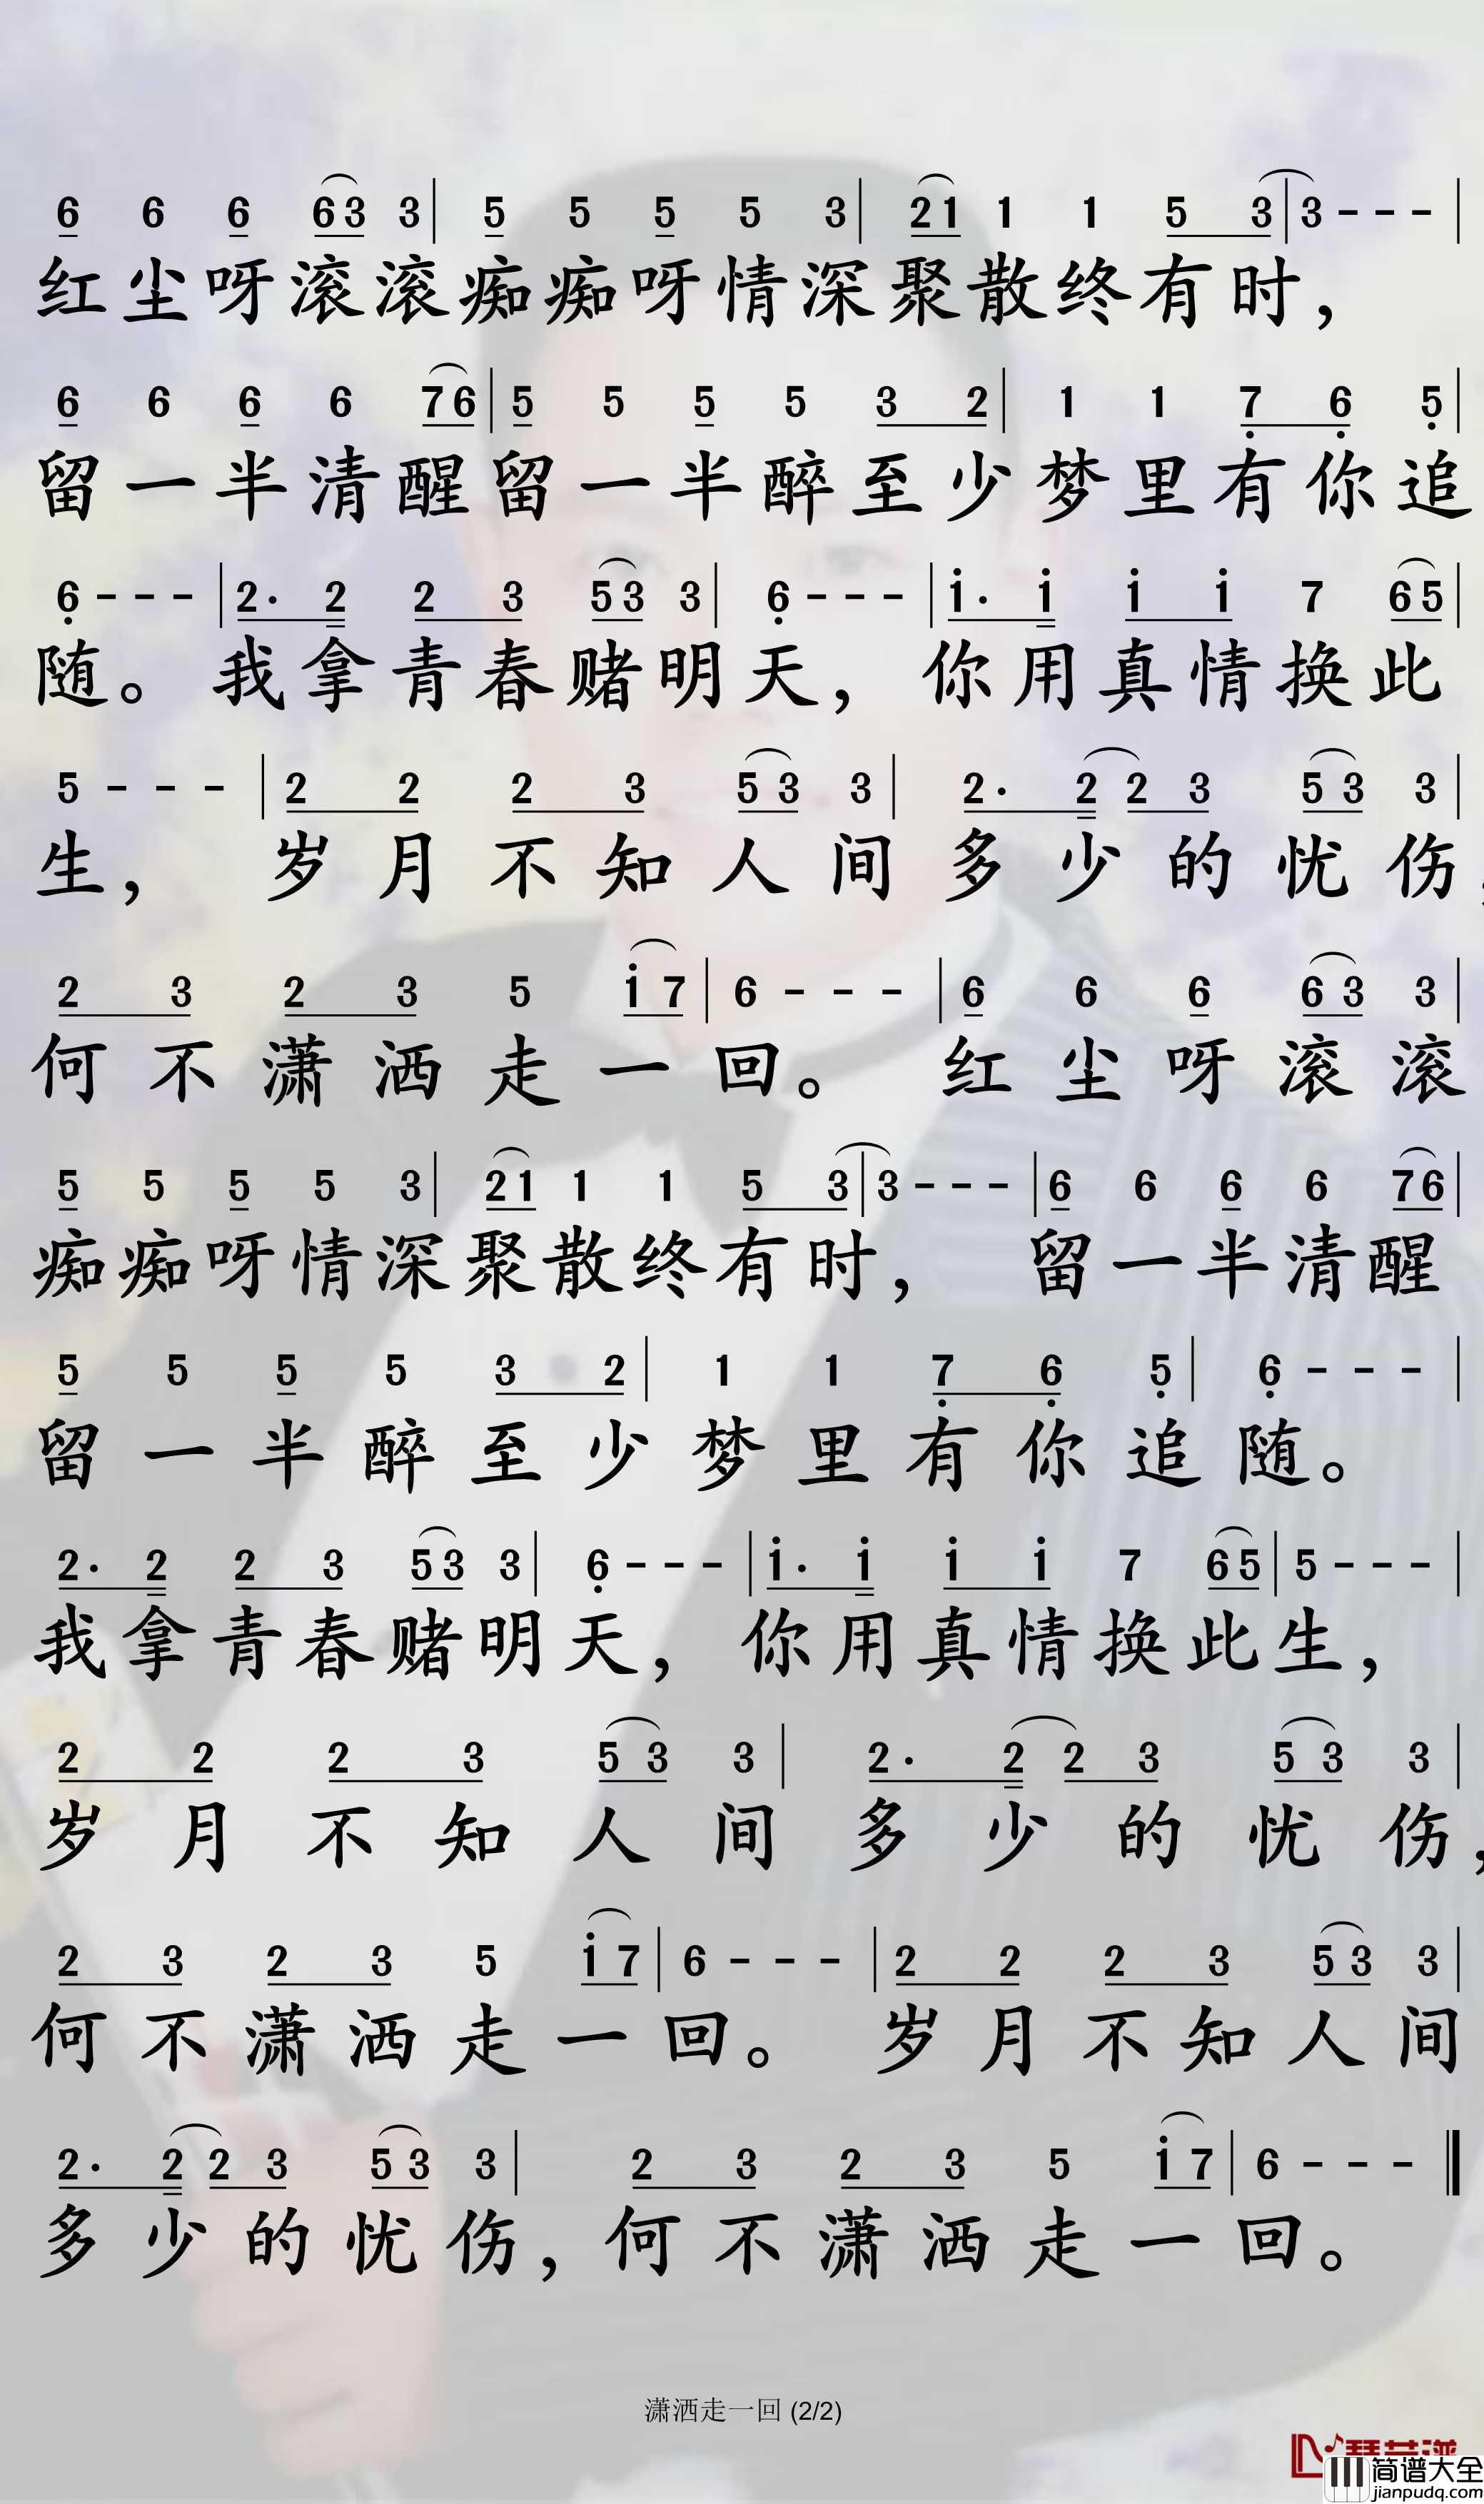 6 6 6 6 3 3 | 5 5 5 5 3 | 2 1 1 1 5 3 | 3 - - - |
红尘呀滚滚痴痴呀情深聚散终有时，
6 6 6 6 7 6 | 5 5 5 5 3 2 | 1 1 7̣ 6̣ 5̣ |
留一半清醒留一半醉至少梦里有你追
6̣ - - - | 2· 2 2 3 5 3 3 | 6̣ - - - | i· i i i 7 6 5 |
随。我拿青春赌明天，你用真情换此
5 - - - | 2 2 2 3 5 3 3 | 2· 2 2 3 5 3 3 |
生，岁月不知人间多少的忧伤，
2 3 2 3 5 i 7 | 6 - - - | 6 6 6 6 3 3 |
何不潇洒走一回。红尘呀滚滚
5 5 5 5 3 | 2 1 1 1 5 3 | 3 - - - | 6 6 6 6 7 6 |
痴痴呀情深聚散终有时，留一半清醒
5 5 5 5 3 2 | 1 1 7̣ 6̣ 5̣ | 6̣ - - - |
留一半醉至少梦里有你追随。
2· 2 2 3 5 3 3 | 6̣ - - - | i· i i i 7 6 5 | 5 - - - |
我拿青春赌明天，你用真情换此生，
2 2 2 3 5 3 3 | 2· 2 2 3 5 3 3 |
岁月不知人间多少的忧伤，
2 3 2 3 5 i 7 | 6 - - - | 2 2 2 3 5 3 3 |
何不潇洒走一回。岁月不知人间
2· 2 2 3 5 3 3 | 2 3 2 3 5 i 7 | 6 - - - ‖
多少的忧伤，何不潇洒走一回。
潇洒走一回 (2/2)
简谱大全
jianpudq.com